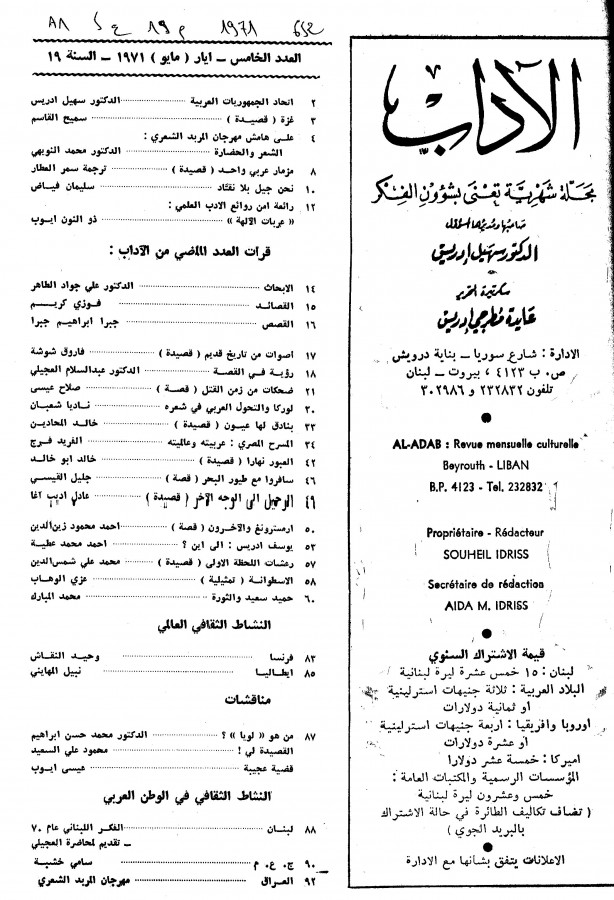 ٨٨ ع ١٩ م 1971 652
العدد الخامس – ايار ( مايو ) ١٩٧١ – السنة ١٩
٢ اتحاد الجمهوريات العربية الدكتور سهيل ادريس
٣ غزة ( قصيدة ) سميح القاسم
٤ على هامش مهرجان المربد الشعري :
الشعر والحضارة الدكتور محمد النويهي
٨ مزمار عربي واحد ( قصيدة ) ترجمة سمر العطار
١٠ نحن جيل بلا نقاد سليمان فياض
١٢ رائعة من روائع الادب العلمي :
« عربات الآلهة » ذو النون ايوب
قرات العدد الماضي من الآداب :
١٤ الابحاث الدكتور علي جواد الطاهر
١٥ القصائد فوزي كريم
١٦ القصص جبرا ابراهيم جبرا
١٧ اصوات من تاريخ قديم ( قصيدة ) فاروق شوشة
١٨ رؤية في القصة الدكتور عبدالسلام العجيلي
٢١ ضحكات من زمن القتل ( قصة ) صلاح عيسى
٣٠ لوركا والتحول العربي في شعره ناديا شعبان
٣٣ بنادق لها عيون ( قصيدة ) خالد المحادين
٣٤ المسرح المصري : عربيته وعالميته الفريد فرج
٤٢ العبور نهارا ( قصيدة ) خالد ابو خالد
٤٦ سافروا مع طيور البحر ( قصة ) جليل القيسي
٤٩ الرحيل الى الوجه الآخر ( قصيدة ) عادل اديب آغا
٥٠ ارمسترونغ والآخرون ( قصة ) احمد محمود زين‌الدين
٥٣ يوسف ادريس : الى اين ؟ احمد محمد عطية
٥٧ رعشات اللحظة الاولى ( قصيدة ) محمد علي شمس‌الدين
٥٨ الاسطوانة ( تمثيلية ) عزي الوهاب
٦٠ حميد سعيد والثورة محمد المبارك
النشاط الثقافي العالمي
٨٣ فرنسا وحيد النقاش
٨٥ ايطاليا نبيل المهايني
مناقشات
٨٧ من هو « لوبا » ؟ الدكتور محمد حسن ابراهيم
القصيدة لي ! محمود علي السعيد
قضية عجيبة عيسى ايوب
النشاط الثقافي في الوطن العربي
٨٨ لبنان الفكر اللبناني عام ٧٠
– تقديم لمحاضرة العجيلي
٩٠ ج. ع. م سامي خشبة
٩٢ العراق مهرجان المربد الشعري
الآداب
مجلة شهرية تعنى بشؤون الفكر
صاحبها ومديرها المسؤول
الدكتور سهيل ادريس
سكرتيرة التحرير
عايدة مطرجي ادريس
الادارة : شارع سوريا – بناية درويش
ص. ب ٤١٢٣ ، بيروت – لبنان
تلفون ٢٣٢٨٣٢ و ٣٠٢٩٨٦
AL-ADAB : Revue mensuelle culturelle
Beyrouth - LIBAN
B.P. 4123 - Tel. 232832
Propriétaire - Rédacteur
SOUHEIL IDRISS
Secrétaire de rédaction
AIDA M. IDRISS
قيمة الاشتراك السنوي
لبنان : ١٥ خمس عشرة ليرة لبنانية
البلاد العربية : ثلاثة جنيهات استرلينية
او ثمانية دولارات
اوروبا وافريقيا : اربعة جنيهات استرلينية
او عشرة دولارات
اميركا : خمسة عشر دولارا
المؤسسات الرسمية والمكتبات العامة :
خمس وعشرون ليرة لبنانية
( تضاف تكاليف الطائرة في حالة الاشتراك
بالبريد الجوي )
الاعلانات يتفق بشأنها مع الادارة